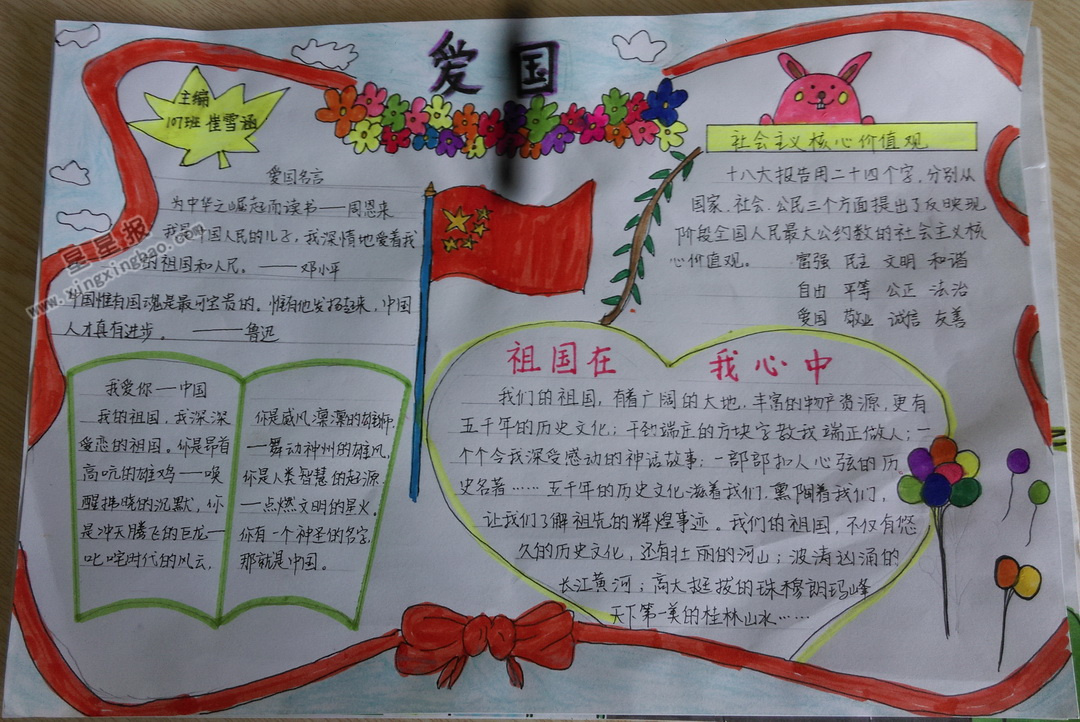 爱国
主编
107班 崔雪涵
爱国名言
为中华之崛起而读书——周恩来
我是中国人民的儿子，我深情地爱着我
的祖国和人民。——邓小平
中国惟有国魂是最可宝贵的。惟有他发扬起来，中国
人才真有进步。——鲁迅
星星报
www.xingxingbao.com
社会主义核心价值观
十八大报告用二十四个字，分别从
国家、社会、公民三个方面提出了反映现
阶段全国人民最大公约数的社会主义核
心价值观。 富强 民主 文明 和谐
自由 平等 公正 法治
爱国 敬业 诚信 友善
我爱你——中国
我的祖国，我深深
爱恋的祖国。你是昂首
高吭的雄鸡——唤
醒拂晓的沉默，你
是冲天腾飞的巨龙—
叱咤时代的风云，
你是威风凛凛的雄狮，
—舞动神州的雄风，
你是人类智慧的起源
—点燃文明的星火。
你有一个神圣的名字，
那就是中国。
祖国在 我心中
我们的祖国，有着广阔的大地，丰富的物产资源，更有
五千年的历史文化；平稳端庄的方块字教我端正做人；一
个个令我深受感动的神话故事；一部部扣人心弦的历
史名著……五千年的历史文化滋着我们，熏陶着我们，
让我们了解祖先的辉煌事迹。我们的祖国，不仅有悠
久的历史文化，还有壮丽的河山；波涛汹涌的
长江黄河；高大挺拔的珠穆朗玛峰
天下第一美的桂林山水……